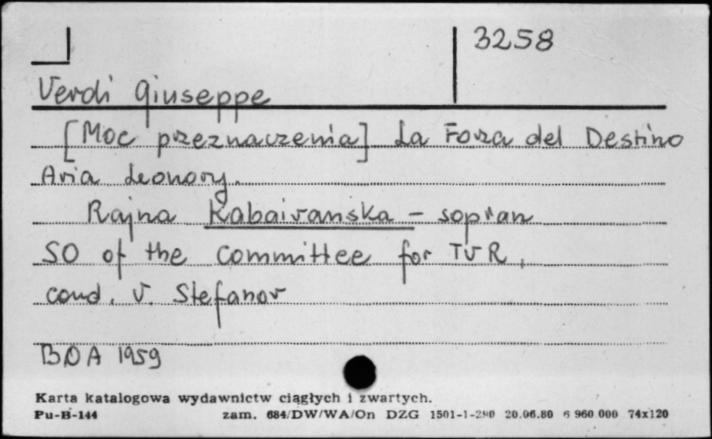 3258
Verdi Giuseppe
[Moc przeznaczenia] La Forza del Destino
Aria Leonory.
Rajna Kabaivanska - sopran
SO of the Committee for TVR,
cond. V. Stefanov
BOA 1959
Karta katalogowa wydawnictw ciągłych i zwartych.
Pu-B-144 zam. 684/DW/WA/On DZG 1501-1-280 20.06.80 6 960 000 74x120